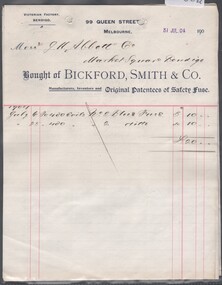 VICTORIAN FACTORY
BENDIGO.
99 QUEEN STREET,
MELBOURNE,
31 JUL 04 190
Mess J H Abbott & Co
Market Square Bendigo
Bought of BICKFORD, SMITH & CO.
Manufacturers, Inventors and Original Patentees of Safety Fuse.
1904
July 6 To 400 Coils No 2 Fuse 10
25 400 2 ditto 10
£ 20